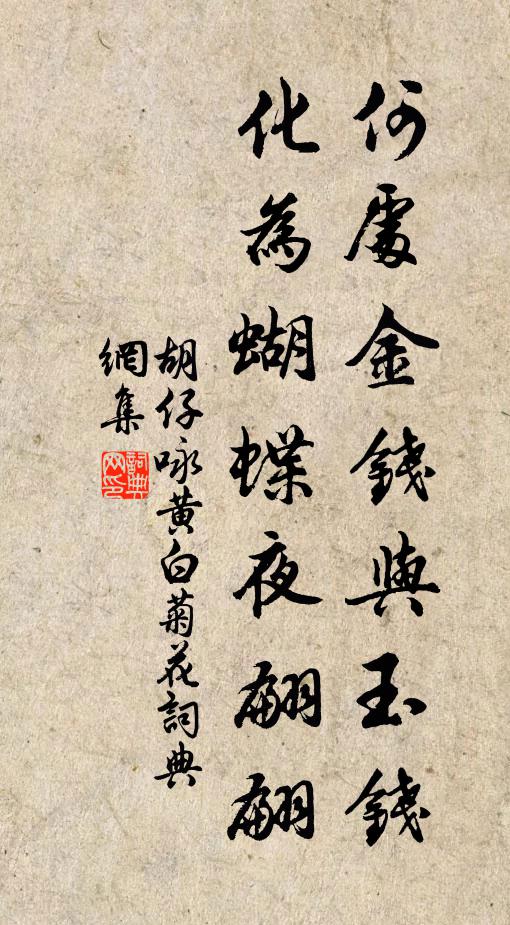 何處金錢與玉錢
化為蝴蝶夜翩翩
胡仔咏黃白菊花詞典
網集
詞典網印